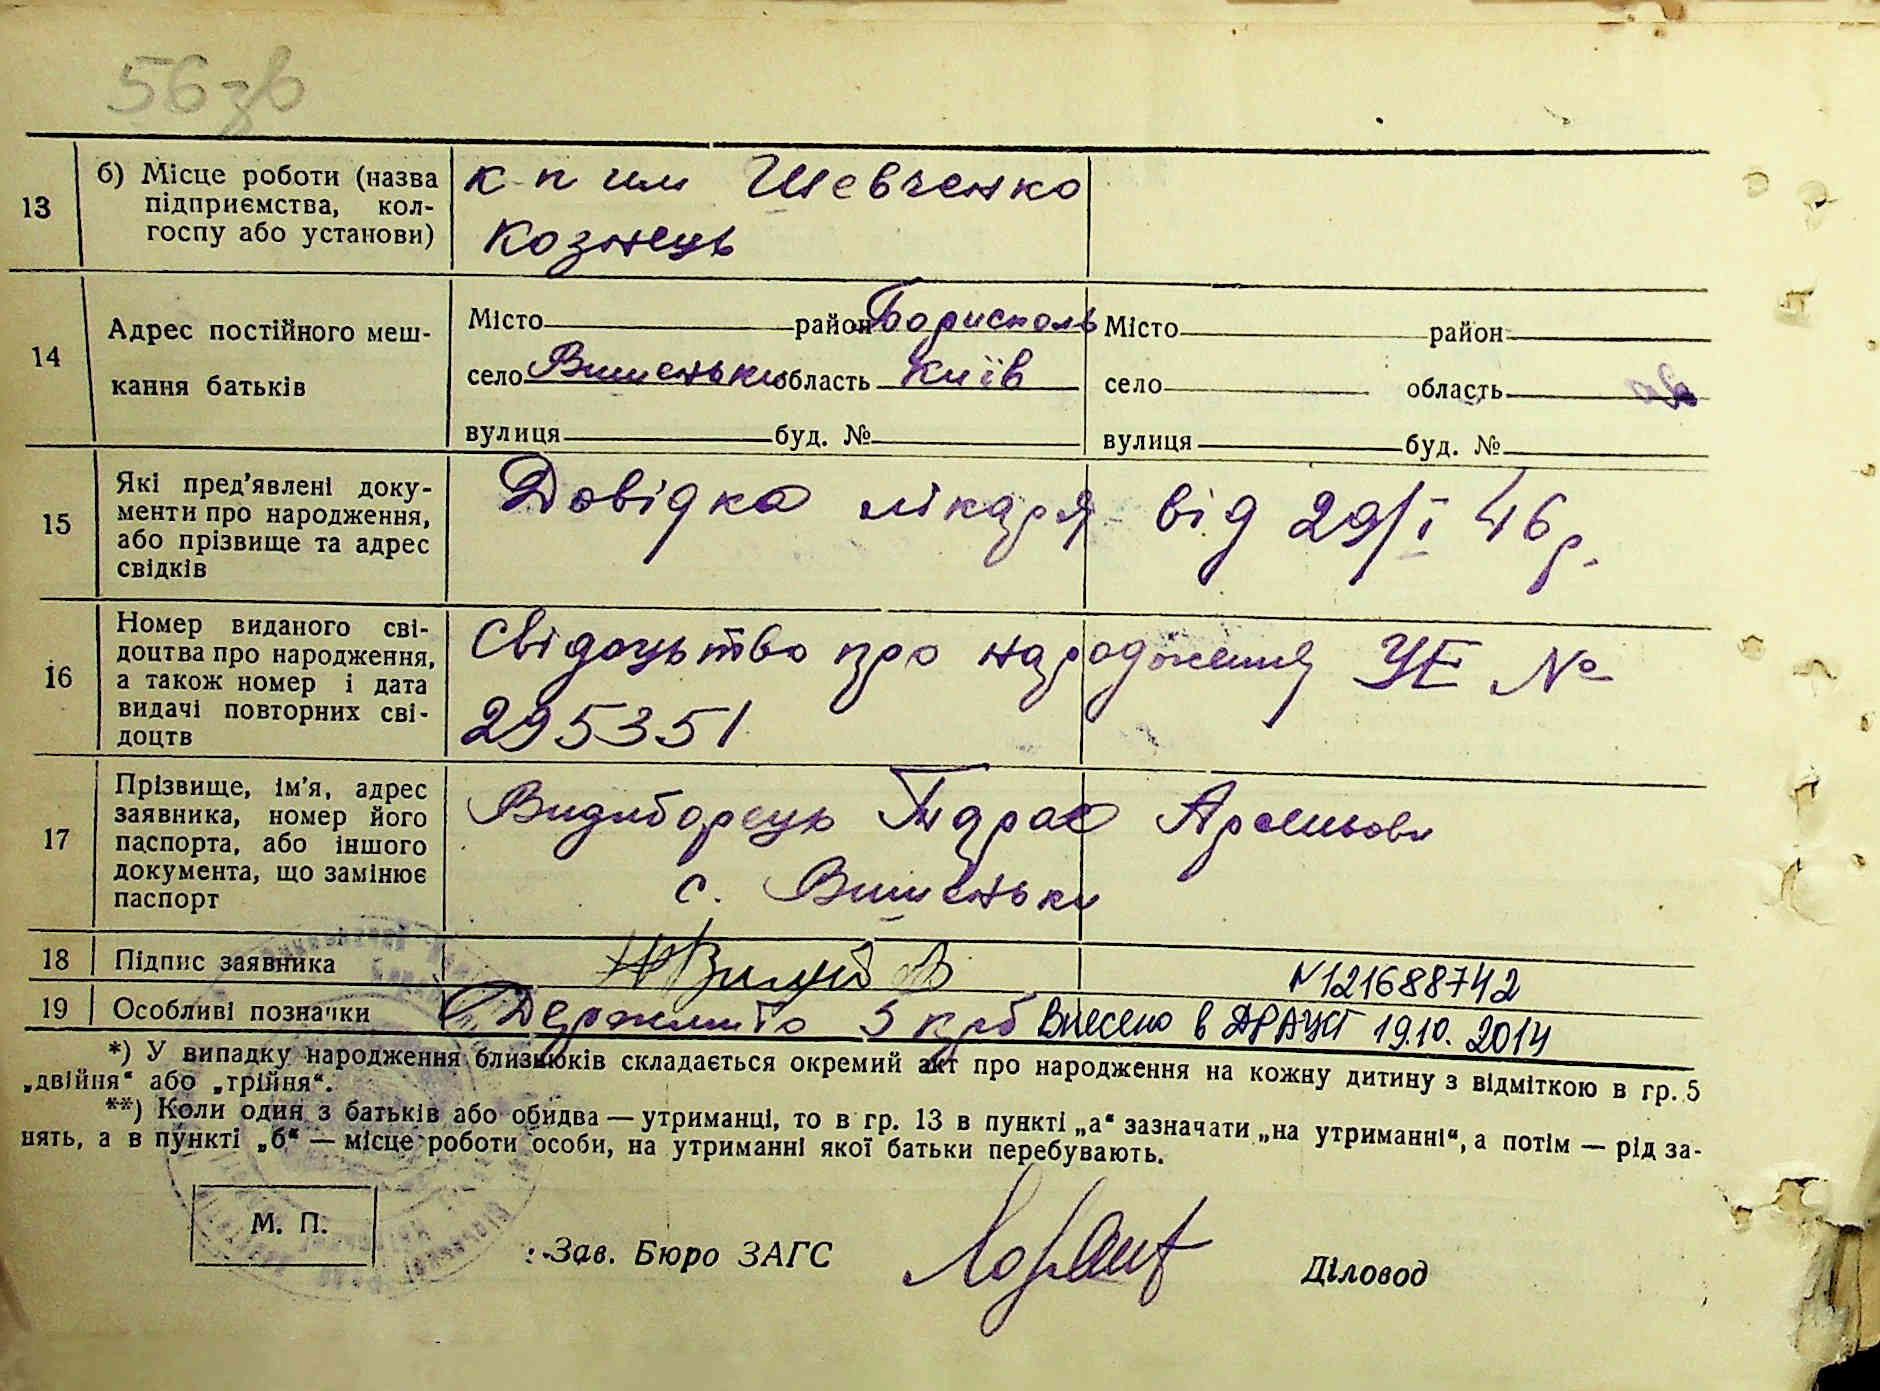 56 зв
13
б) Місце роботи (назва
підприємства, кол-
госпу або установи)
к-п им Шевченко
Кознець
14
Адрес постійного меш-
кання батьків
Місто район Борисполь
село Вишеньки область Київ
вулиця буд. №
Місто район
село область
вулиця буд. №
15
Які пред'явлені доку-
менти про народження,
або прізвище та адрес
свідків
Довідка лікаря від 29/I 46 р.
16
Номер виданого сві-
доцтва про народження,
а також номер і дата
видачі повторних сві-
доцтв
Свідоцьтво про народження УЕ №
295351
17
Прізвище, ім'я, адрес
заявника, номер його
паспорта, або іншого
документа, що замінює
паспорт
Видиборець Тарас
с. Вишеньки
18
Підпис заявника
N121688742
19
Особливі позначки
Держмито 5 крб Внесено в ДРАЦСГ 19.10. 2014
*) У випадку народження близнюків складається окремий акт про народження на кожну дитину з відміткою в гр. 5
„двійня“ або „трійня“.
**) Коли один з батьків або обидва — утриманці, то в гр. 13 в пункті „а“ зазначати „на утриманні“, а потім — рід за-
нять, а в пункті „б“ — місце роботи особи, на утриманні якої батьки перебувають.
М. П.
Зав. Бюро ЗАГС
Діловод